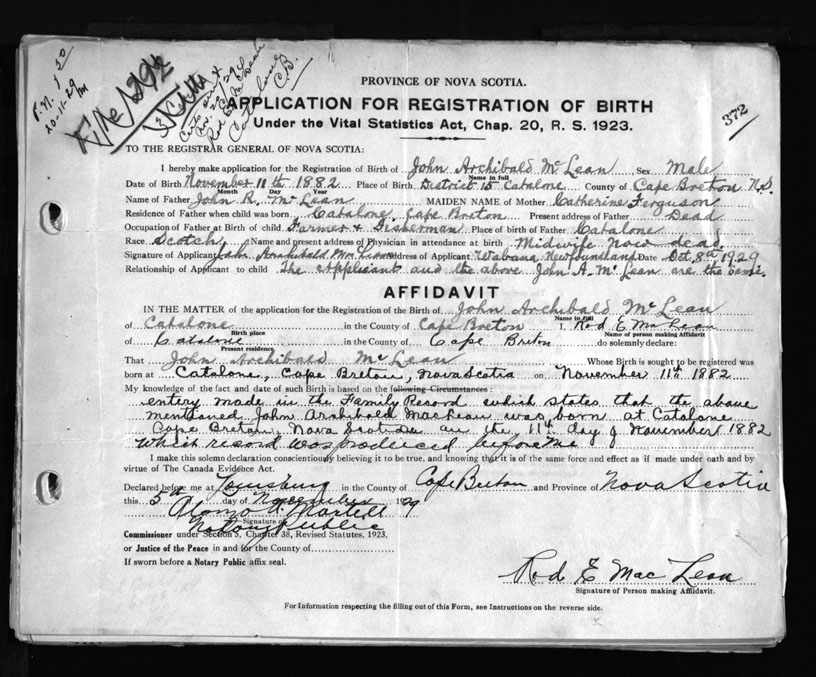 P.N. 1 20
20-11-29
File 1292
Cert. sent
Nov. 21/29
Rod E McLean
Catalone
C.B.
372
PROVINCE OF NOVA SCOTIA.
APPLICATION FOR REGISTRATION OF BIRTH
Under the Vital Statistics Act, Chap. 20, R. S. 1923.
TO THE REGISTRAR GENERAL OF NOVA SCOTIA:
I hereby make application for the Registration of Birth of John Archibald McLean Sex Male
Name in full
Date of Birth November 11th 1882 Place of Birth District 15 Catalone County of Cape Breton N.S.
Month Day Year
Name of Father John R. McLean MAIDEN NAME of Mother Catherine Ferguson
Residence of Father when child was born Catalone, Cape Breton Present address of Father Dead
Occupation of Father at Birth of child Farmer & Fisherman Place of birth of Father Catalone
Race Scotch Name and present address of Physician in attendance at birth Midwife Now dead
Signature of Applicant John Archibald McLean Address of Applicant Wabana, Newfoundland Date Oct 8th 1929
Relationship of Applicant to child The Applicant and the above John A. McLean are the same.
AFFIDAVIT
IN THE MATTER of the application for the Registration of the Birth of John Archibald McLean
Name in full
of Catalone in the County of Cape Breton I, Rod E MacLean
Birth place Name of person making Affidavit
of Catalone in the County of Cape Breton do solemnly declare:
Present residence
That John Archibald McLean Whose Birth is sought to be registered was
born at Catalone, Cape Breton, Nova Scotia on November 11th 1882
My knowledge of the fact and date of such Birth is based on the following Circumstances:
entery made in the Family Record which states that the above
mentioned John Archibald MacLean was born at Catalone
Cape Breton, Nova Scotia on the 11th day of November 1882
Which record was produced before me
I make this solemn declaration conscientiously believing it to be true, and knowing that it is of the same force and effect as if made under oath and by
virtue of The Canada Evidence Act.
Declared before me at Louisburg in the County of Cape Breton and Province of Nova Scotia
this 5th day of November 1929
Alonzo A. Martell
Signature of
Notary Public
Commissioner under Section 5, Chapter 38, Revised Statutes, 1923,
or Justice of the Peace in and for the County of
If sworn before a Notary Public affix seal.
Rod E MacLean
Signature of Person making Affidavit.
For Information respecting the filling out of this Form, see Instructions on the reverse side.